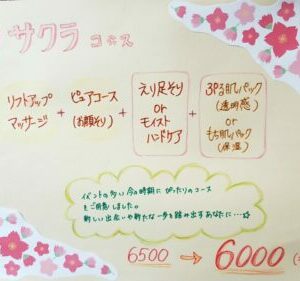 サクラ コース
リフトアップ
マッサージ
+
ピュアコース
(お顔そり)
+
えり足そり
or
モイスト
ハンドケア
+
3Dる肌パック
(透明感)
or
もち肌パック
(保湿)
イベントの多い今の時期にぴったりのコース
をご用意しました。
新しい出会いや新たな一歩を踏み出すあなたに…☆
6500 → 6000